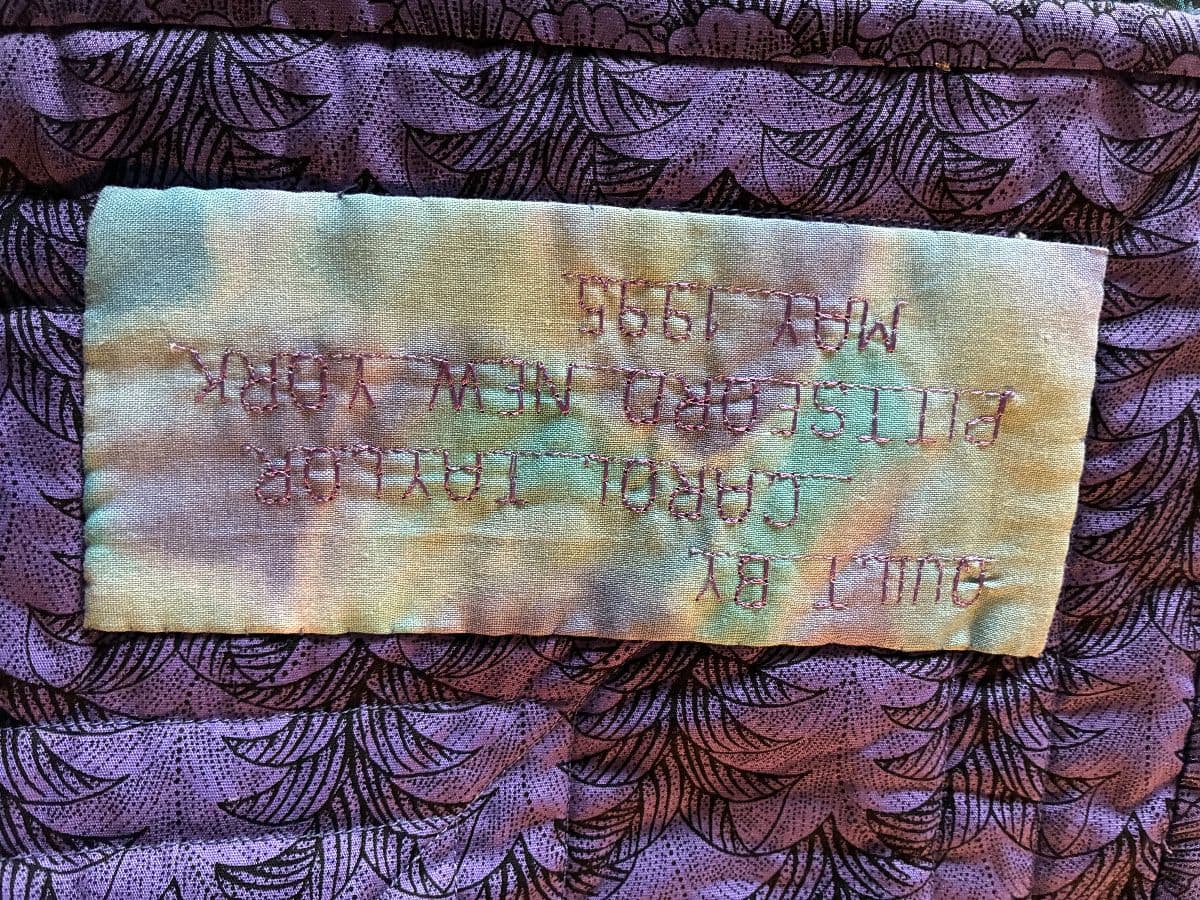 QUILT BY
CAROL TAYLOR
PITTSFORD NEW YORK
MAY 1995